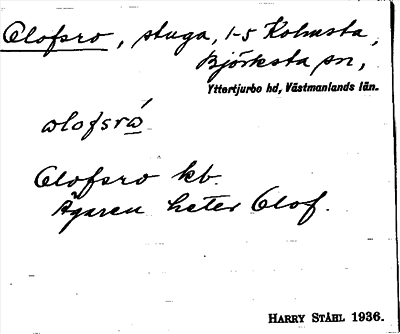 Olofsro, stuga, 1-5 Kolmsta,
Björksta sn,
Yttertjurbo hd, Västmanlands län.
ωlofsrώ
Olofsro kb.
Ägaren heter Olof.
HARRY STÅHL 1936.